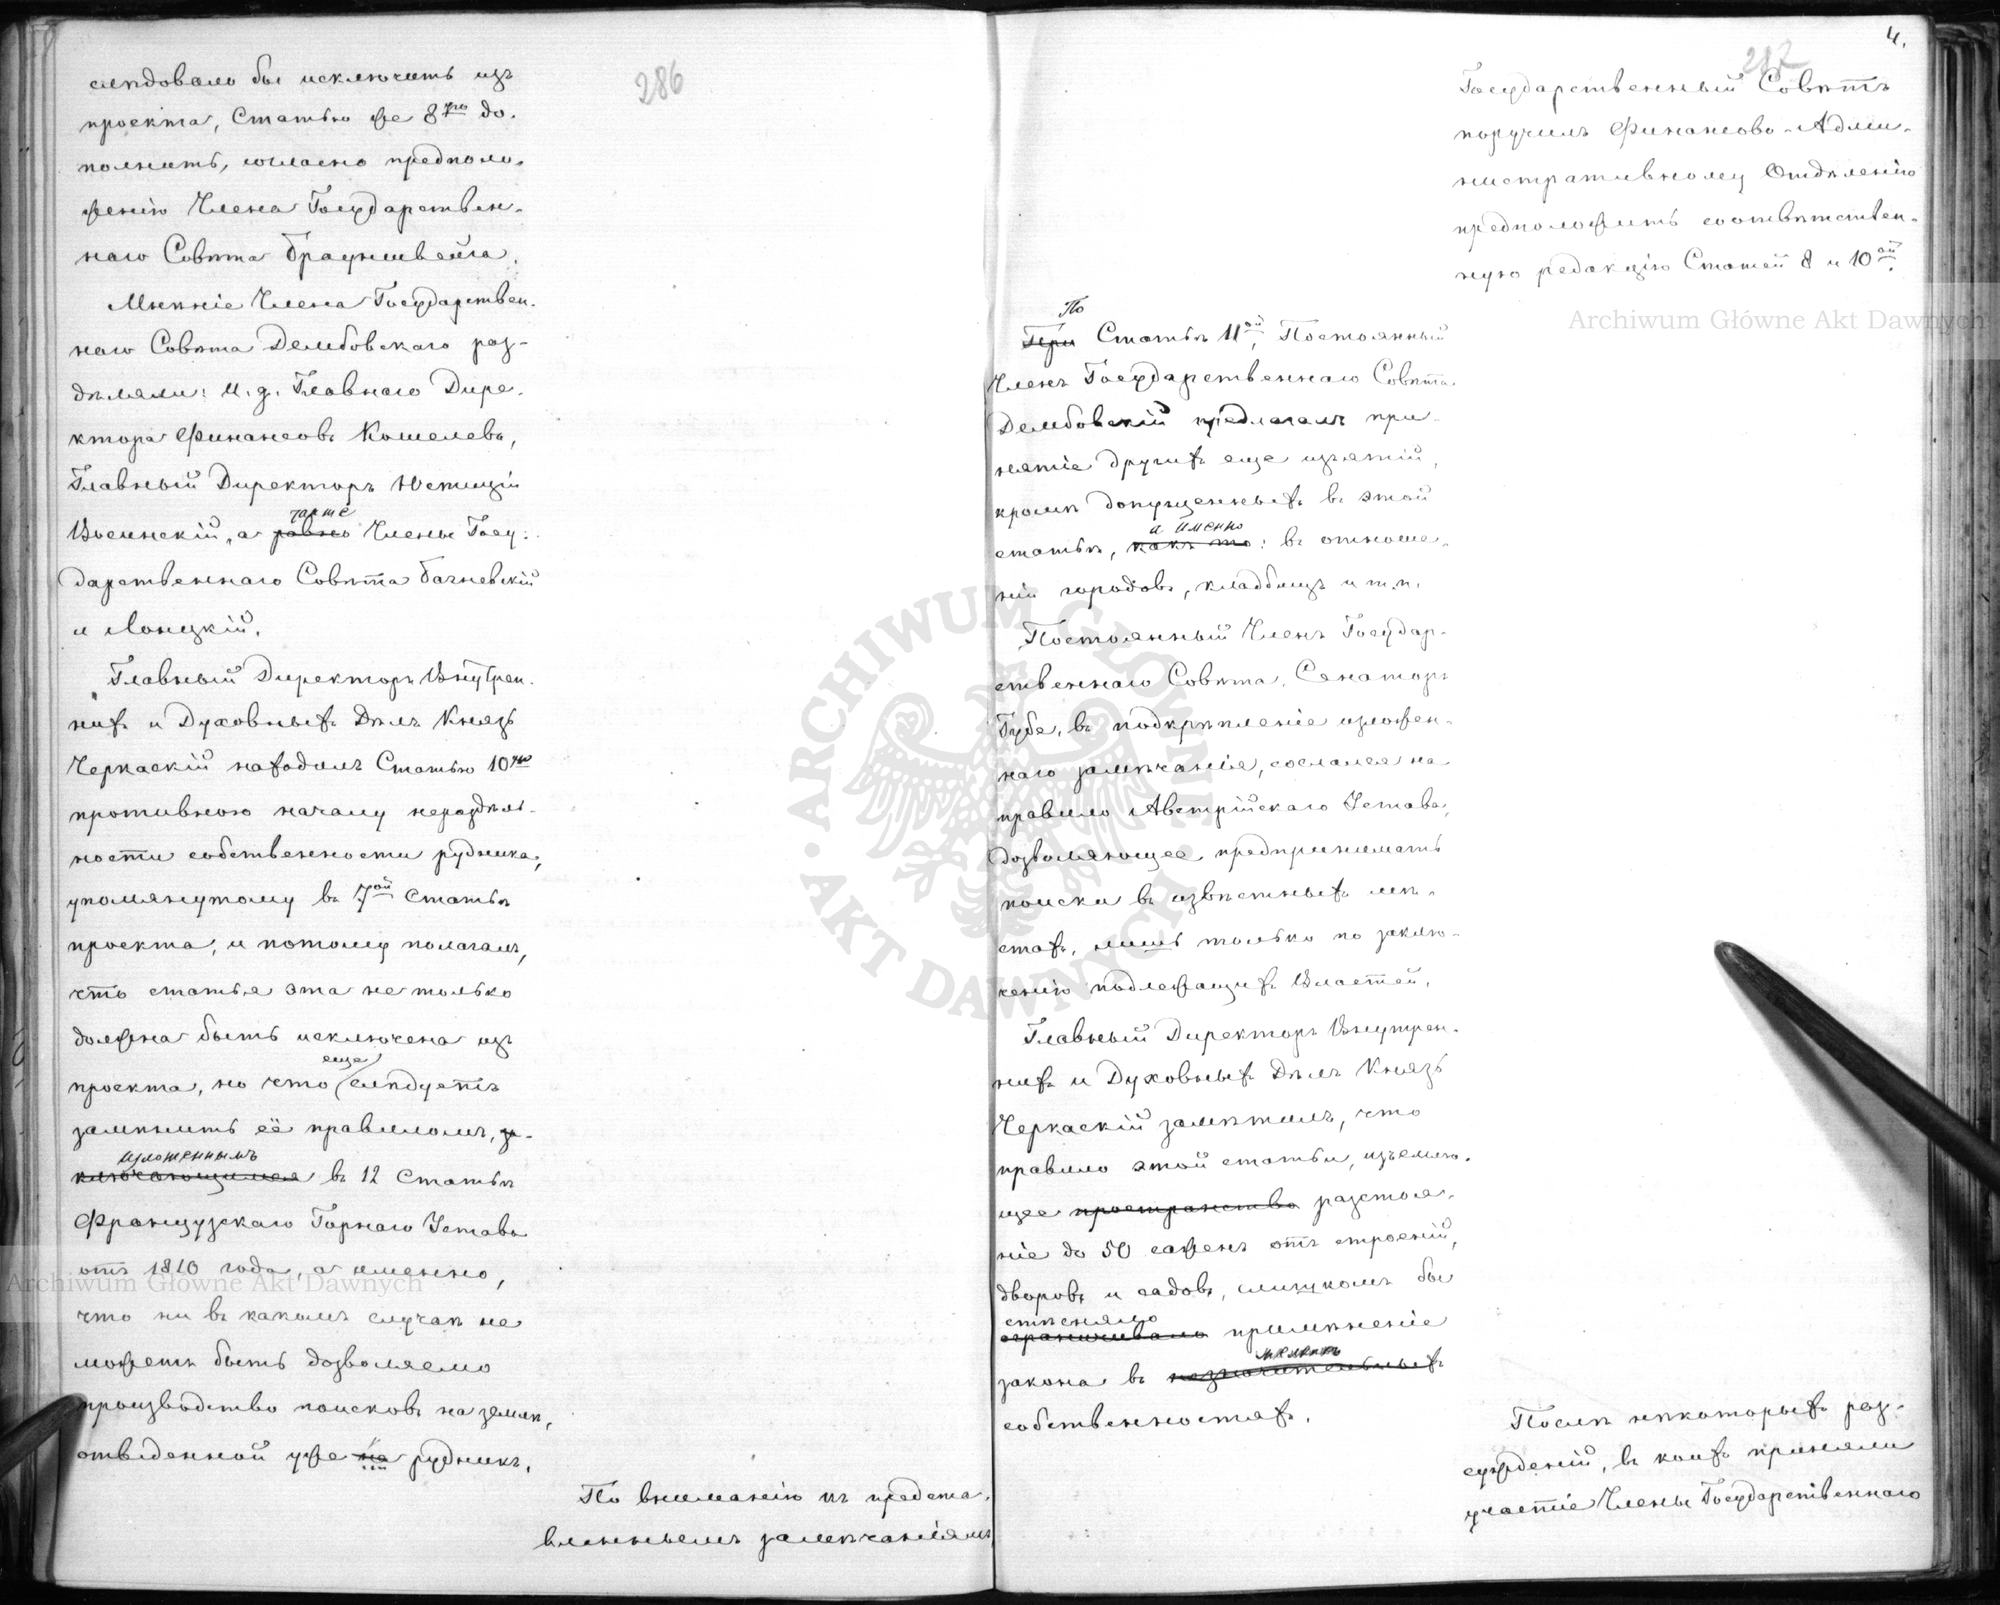 286
слѣдовало бы исключить изъ
проекта, Статью же 8ую до-
полнить, согласно предполо-
женію Члена Государствен-
наго Совѣта Брауншвейга.
Мнѣніе Члена Государствен-
наго Совѣта Дембовскаго раз-
дѣляли: И. д. Главнаго Дире-
ктора Финансовъ Кошелевъ,
Главный Директоръ Юстиціи
также
Восинскій, а равно Члены Госу-
дарственнаго Совѣта Бачневскій
и Лонцкій.
Главный Директоръ Внутрен-
нихъ и Духовныхъ Дѣлъ Князь
Черкаскій находилъ Статью 10ую
противною началу нераздѣль-
ности собственности рудника,
упомянутому въ 7ой Статьѣ
проекта, и потому полагалъ,
что статья эта не только
должна быть исключена изъ
еще
проекта, но что слѣдуетъ
замѣнить её правиломъ, за-
изложеннымъ
ключающимся въ 12 Статьѣ
Французскаго Горнаго Устава
отъ 1810 года, а именно,
что ни въ какомъ случаѣ не
можетъ быть дозволяемо
производство поисковъ на землѣ,
отведенной уже на рудникъ.
По вниманію къ предста-
вленнымъ замѣчаніямъ
4.
287
Государственный Совѣтъ
поручилъ Финансово-Адми-
нистративному Отдѣленію
предположить соотвѣтствен-
ную редакцію Статей 8 и 10ой.
По
При Статьѣ 11ой, Постоянный
Членъ Государственнаго Совѣта
Дембовскій предлагалъ при-
нятіе другихъ еще изъятій,
кромѣ допущенныхъ въ этой
а именно
статьѣ, какъ то: въ отноше-
ніи городовъ, кладбищъ и т. п.
Постоянный Членъ Государ-
ственнаго Совѣта, Сенаторъ
Губе, въ подкрѣпленіе изложен-
наго замѣчанія, сослался на
правило Австрійскаго Устава,
дозволяющее предпринимать
поиски въ извѣстныхъ мѣ-
стахъ, лишь только по заклю-
ченію подлежащихъ Властей.
Главный Директоръ Внутрен-
нихъ и Духовныхъ Дѣлъ Князь
Черкаскій замѣтилъ, что
правило этой статьи, изъемлю-
щее пространство разстоя-
ніе до 50 саженъ отъ строеній,
дворовъ и садовъ, слишкомъ бы
стѣсняло
ограничивало примѣненіе
мелкихъ
закона въ незначительныхъ
собственностяхъ.
Послѣ нѣкоторыхъ раз-
сужденій, въ коихъ приняли
участіе Члены Государственнаго
Archiwum Główne Akt Dawnych
Archiwum Główne Akt Dawnych
ARCHIWUM GŁÓWNE
AKT DAWNYCH